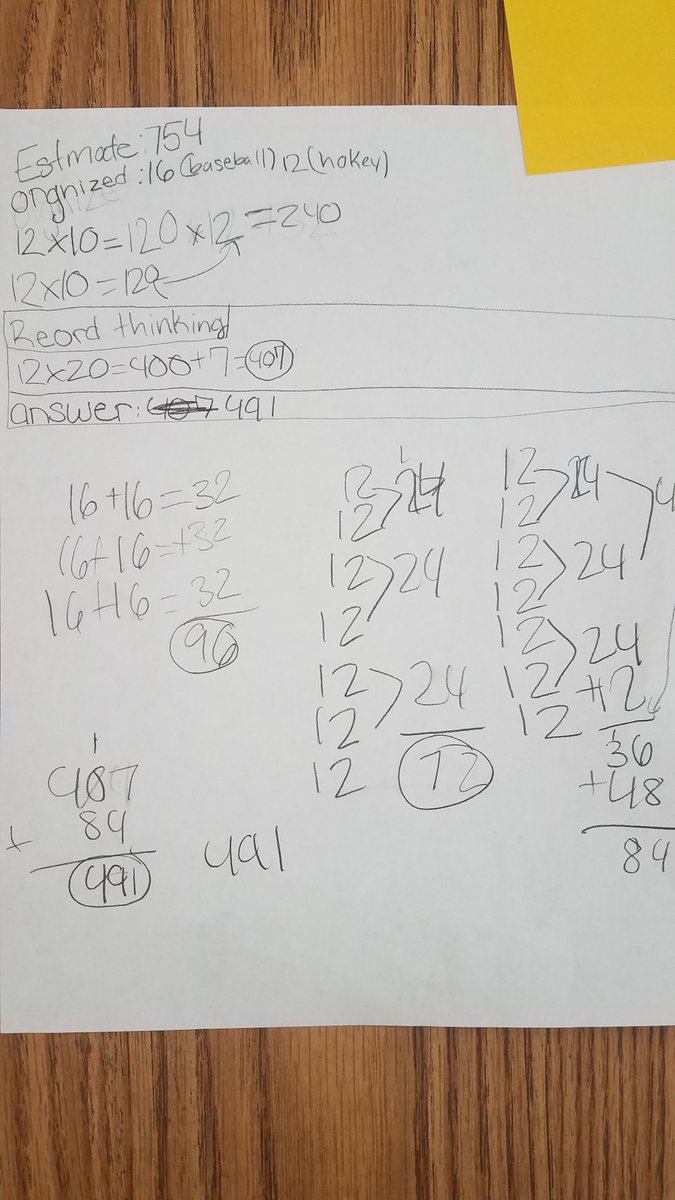 Estmate: 754
orgnized: 16 (baseball) 12 (hokey)
12×10=120×12=240
12×10=120
Reord thinking
12×20=400+7=407
answer: 407 491
16+16=32
16+16=+32
16+16=32
96
12
12
24
12
12
24
12
12
24
12
72
12
12
24
12
12
24
12
12
24
12
+12
1
36
+48
84
1
407
+ 84
491
491